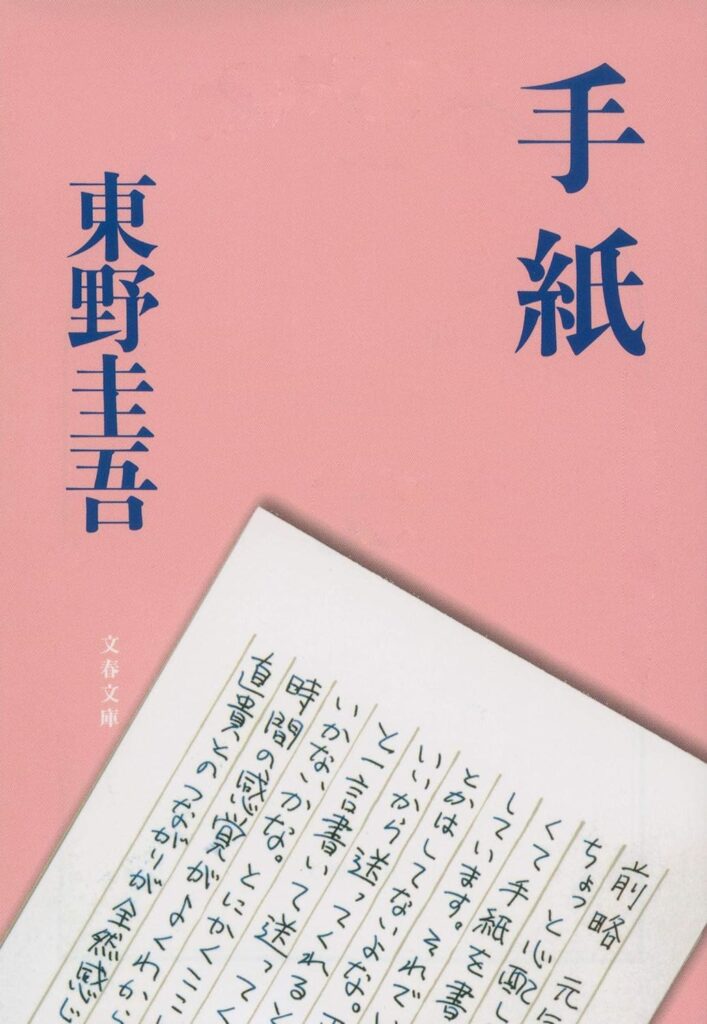 手紙
東野圭吾
文春文庫
前略　元
ちょっと心配し
くて手紙を書
しています。それでい
とかはしてないよな。
いいから送ってくれると
と一言書いて送って
いかないかな。とにかくここ
時間の感覚がよくわから
直貴とのつながりが全然感じ